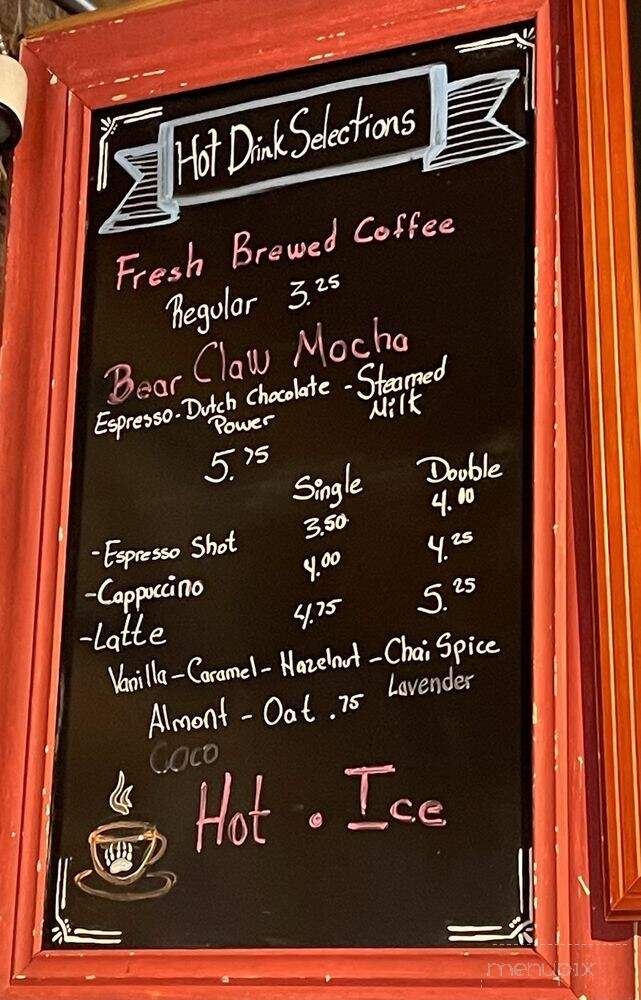 Hot Drink Selections
Fresh Brewed Coffee
Regular 3.25
Bear Claw Mocha
Espresso - Dutch Chocolate - Steamed
Power Milk
5.75
Single Double
-Espresso Shot 3.50 4.00
-Cappuccino 4.00 4.25
-Latte 4.75 5.25
Vanilla - Caramel - Hazelnut - Chai Spice
Lavender
Almont - Oat .75
Coco
Hot . Ice
menupix